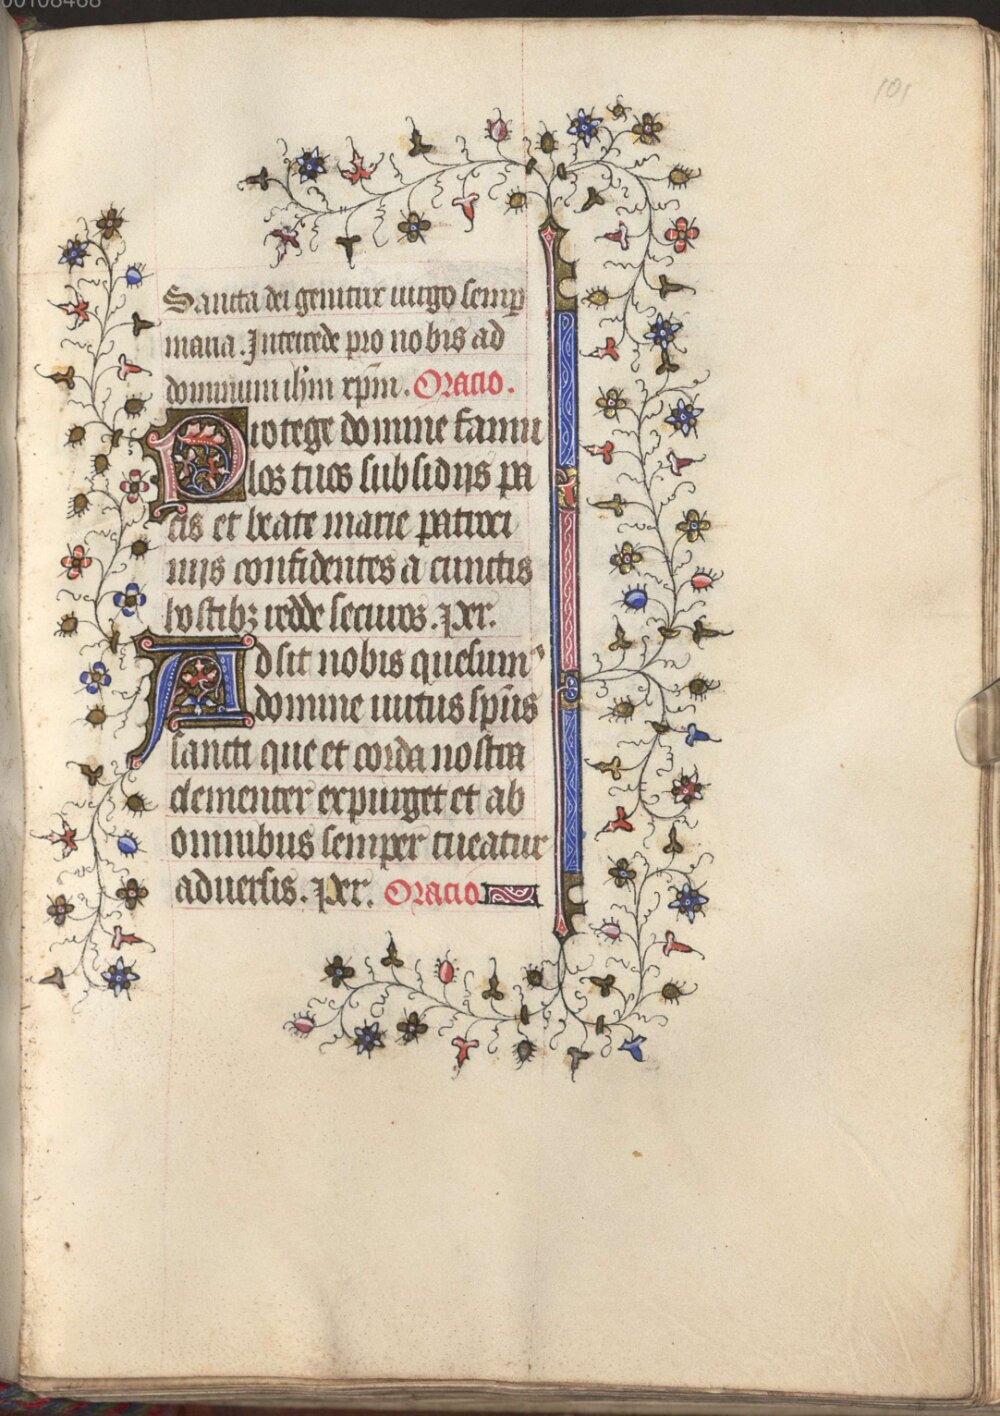 00108488
101
Sancta dei genitrix uirgo semp
maria. Intercede pro nobis ad
dominum ihm xpm. Oracio.
Protege domine famu
los tuos subsidijs pa
cis et beate marie patroci
nijs confidentes a cunctis
hostibz redde securos. per.
Adsit nobis quesum
domine uirtus spūs
sancti que et corda nostra
clementer expurget et ab
omnibus semper tueatur
aduersis. per. Oracio